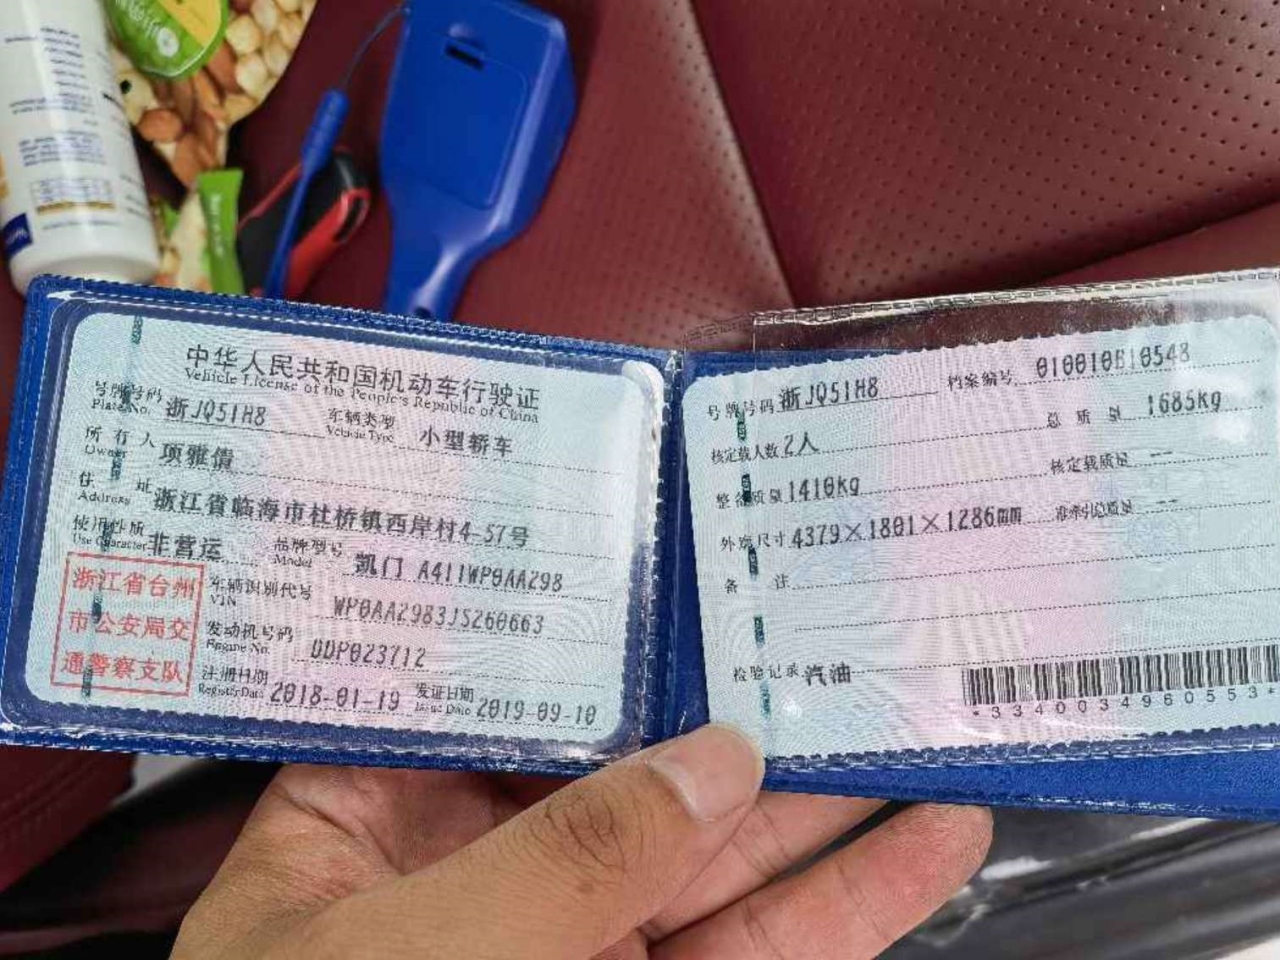 中华人民共和国机动车行驶证
Vehicle License of the People's Republic of China
号牌号码 浙JQ51H8 车辆类型 小型轿车
Plate No. Vehicle Type
所有人 项雅倩
Owner
住址 浙江省临海市杜桥镇西岸村4-57号
Address
使用性质 非营运 品牌型号 凯门 A411WP0AA298
Use Character Model
浙江省台州
市公安局交
通警察支队
车辆识别代号 WP0AA2983JS260663
VIN
发动机号码 DDP023712
Engine No.
注册日期 2018-01-19 发证日期 2019-09-10
Register Date Issue Date
号牌号码 浙JQ51H8 档案编号 010010810548
核定载人数 2人 总质量 1685kg
整备质量 1410kg 核定载质量 --
外廓尺寸 4379×1801×1286mm 准牵引总质量 --
备注
检验记录 汽油
*3340034960553*